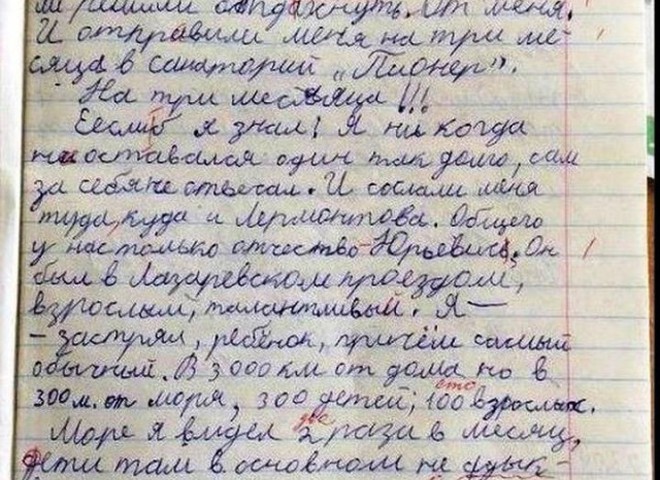 ли решили отдохнуть. От меня.
И отправили меня на три ме-
сяца в санаторий „Пионер".
На три месяца!!!
Еесли б я знал! Я ни когда
не оставался один так долго, сам
за себя не отвечал. И сослали меня
туда, куда и Лермонтова. Общего
у нас только отчество - Юрьевич. Он
был в Лазаревском проездом,
взрослый, талантливый. Я —
- застрял, ребёнок, причём самый
обычный. В 3 000 км от дома но в
сто
300 м. от моря, 300 детей, 100 взрослых.
два
Море я видел 2 раза в месяц,
Дети там в основном не адык-